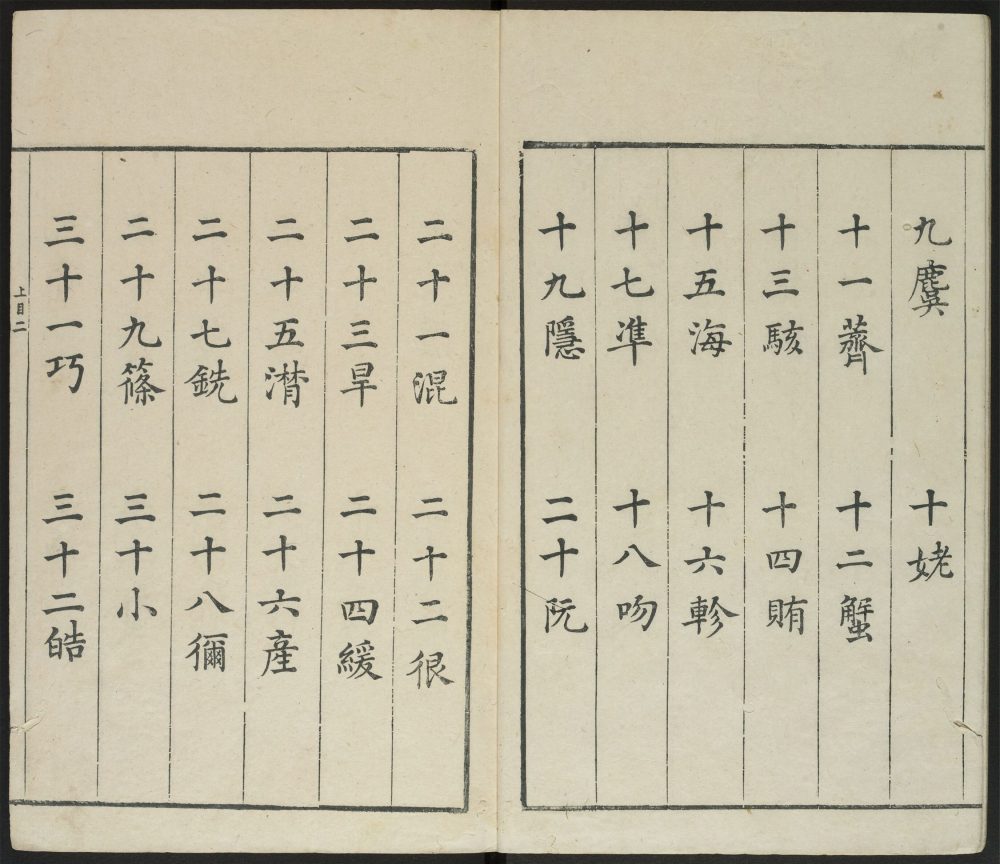 九麌　十姥
十一薺　十二蟹
十三駭　十四賄
十五海　十六軫
十七凖　十八吻
十九隱　二十阮
二十一混　二十二很
二十三旱　二十四緩
二十五潸　二十六産
二十七銑　二十八獮
二十九篠　三十小
三十一巧　三十二皓
上目二